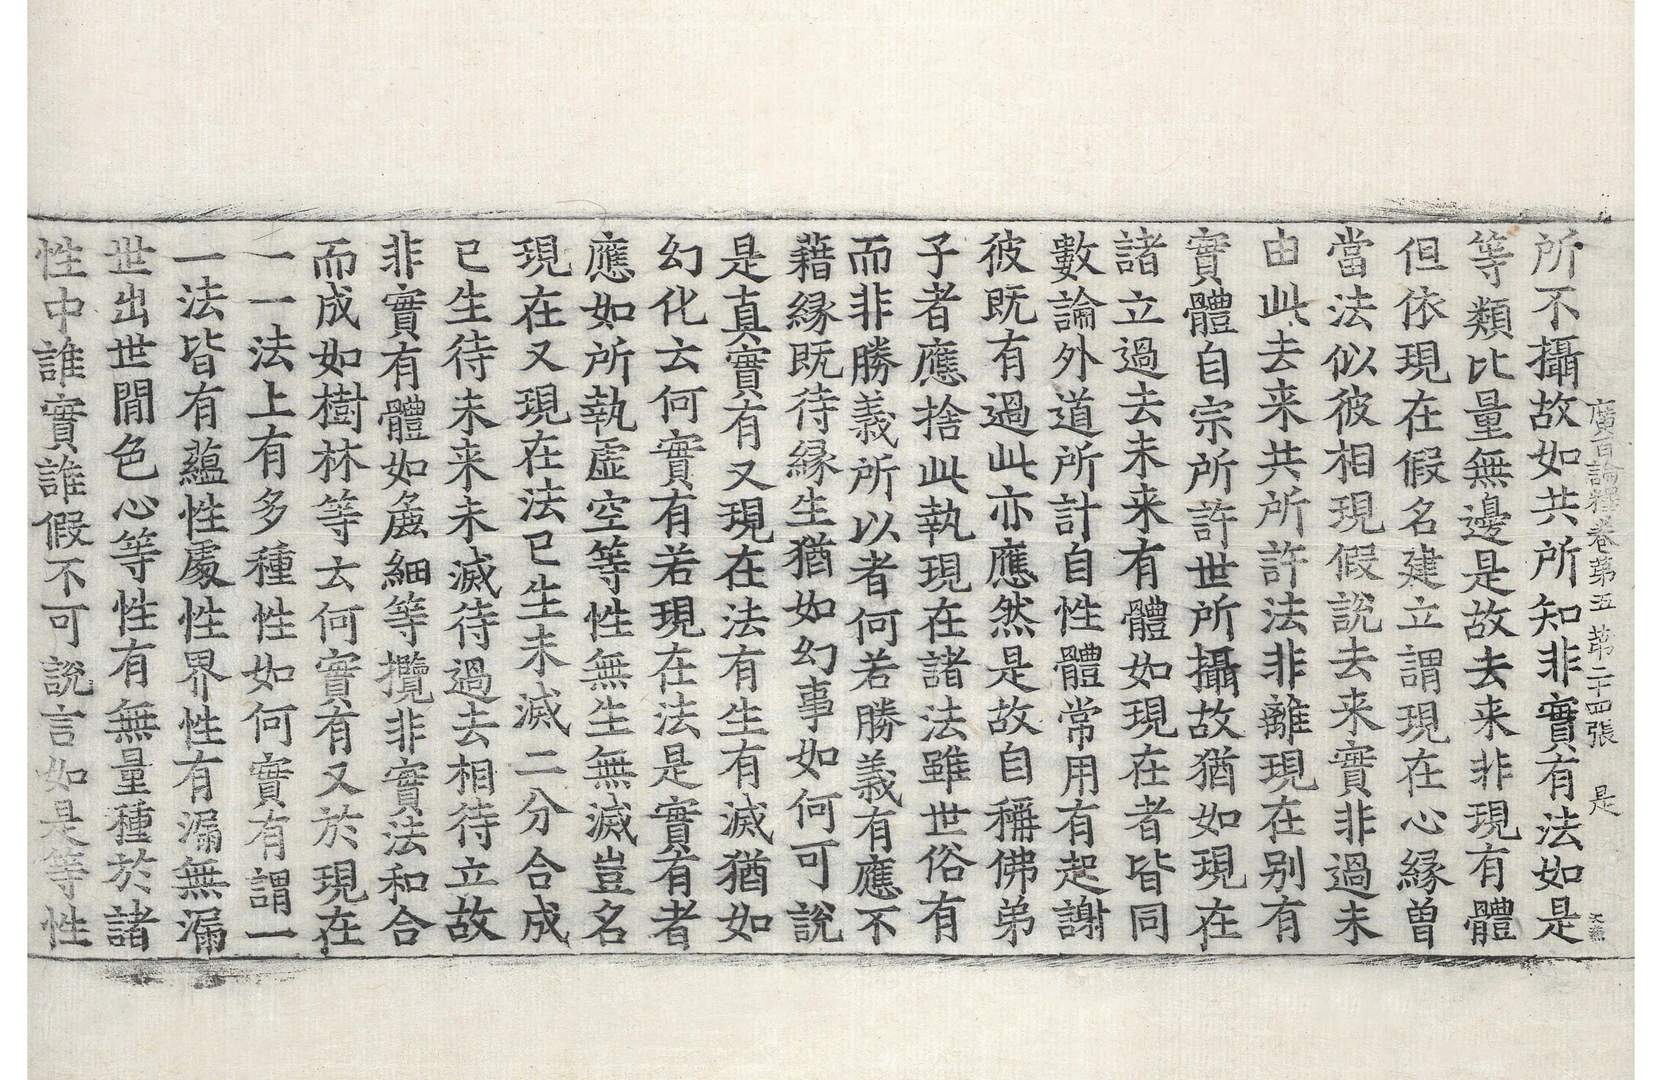 廣百論釋卷第五　第二十四張　是
所不攝故如共所知非實有法如是
等類比量無邊是故去来非現有體
但依現在假名建立謂現在心縁曽
當法似彼相現假說去来實非過未
由此去来共所許法非離現在别有
實體自宗所許世所攝故猶如現在
諸立過去未来有體如現在者皆同
數論外道所計自性體常用有起謝
彼既有過此亦應然是故自稱佛弟
子者應捨此執現在諸法雖世俗有
而非勝義所以者何若勝義有應不
藉縁既待縁生猶如幻事如何可說
是真實有又現在法有生有滅猶如
幻化云何實有若現在法是實有者
應如所執虛空等性無生無滅豈名
現在又現在法已生未滅二分合成
已生待未来未滅待過去相待立故
非實有體如麁細等攬非實法和合
而成如樹林等云何實有又於現在
一一法上有多種性如何實有謂一
一法皆有蘊性處性界性有漏無漏
世出世間色心等性有無量種於諸
性中誰實誰假不可說言如是等性